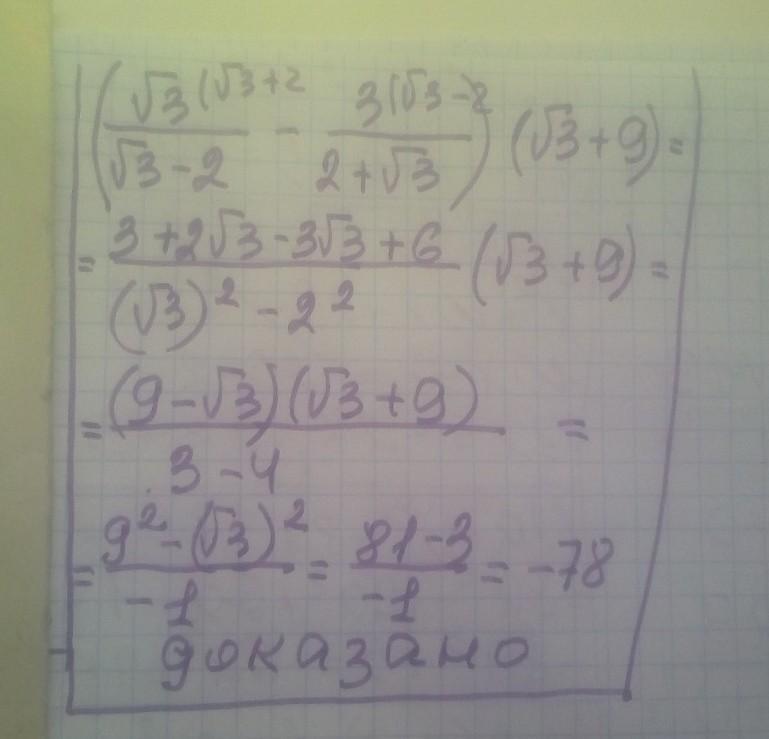 (√3 (√3+2 / √3-2 - 3(√3-2 / 2+√3) (√3+9)=
= 3+2√3-3√3+6 / (√3)² -2² (√3+9)=
= (9-√3)(√3+9) / 3-4 =
= 9²-(√3)² / -1 = 81-3 / -1 = -78
доказано